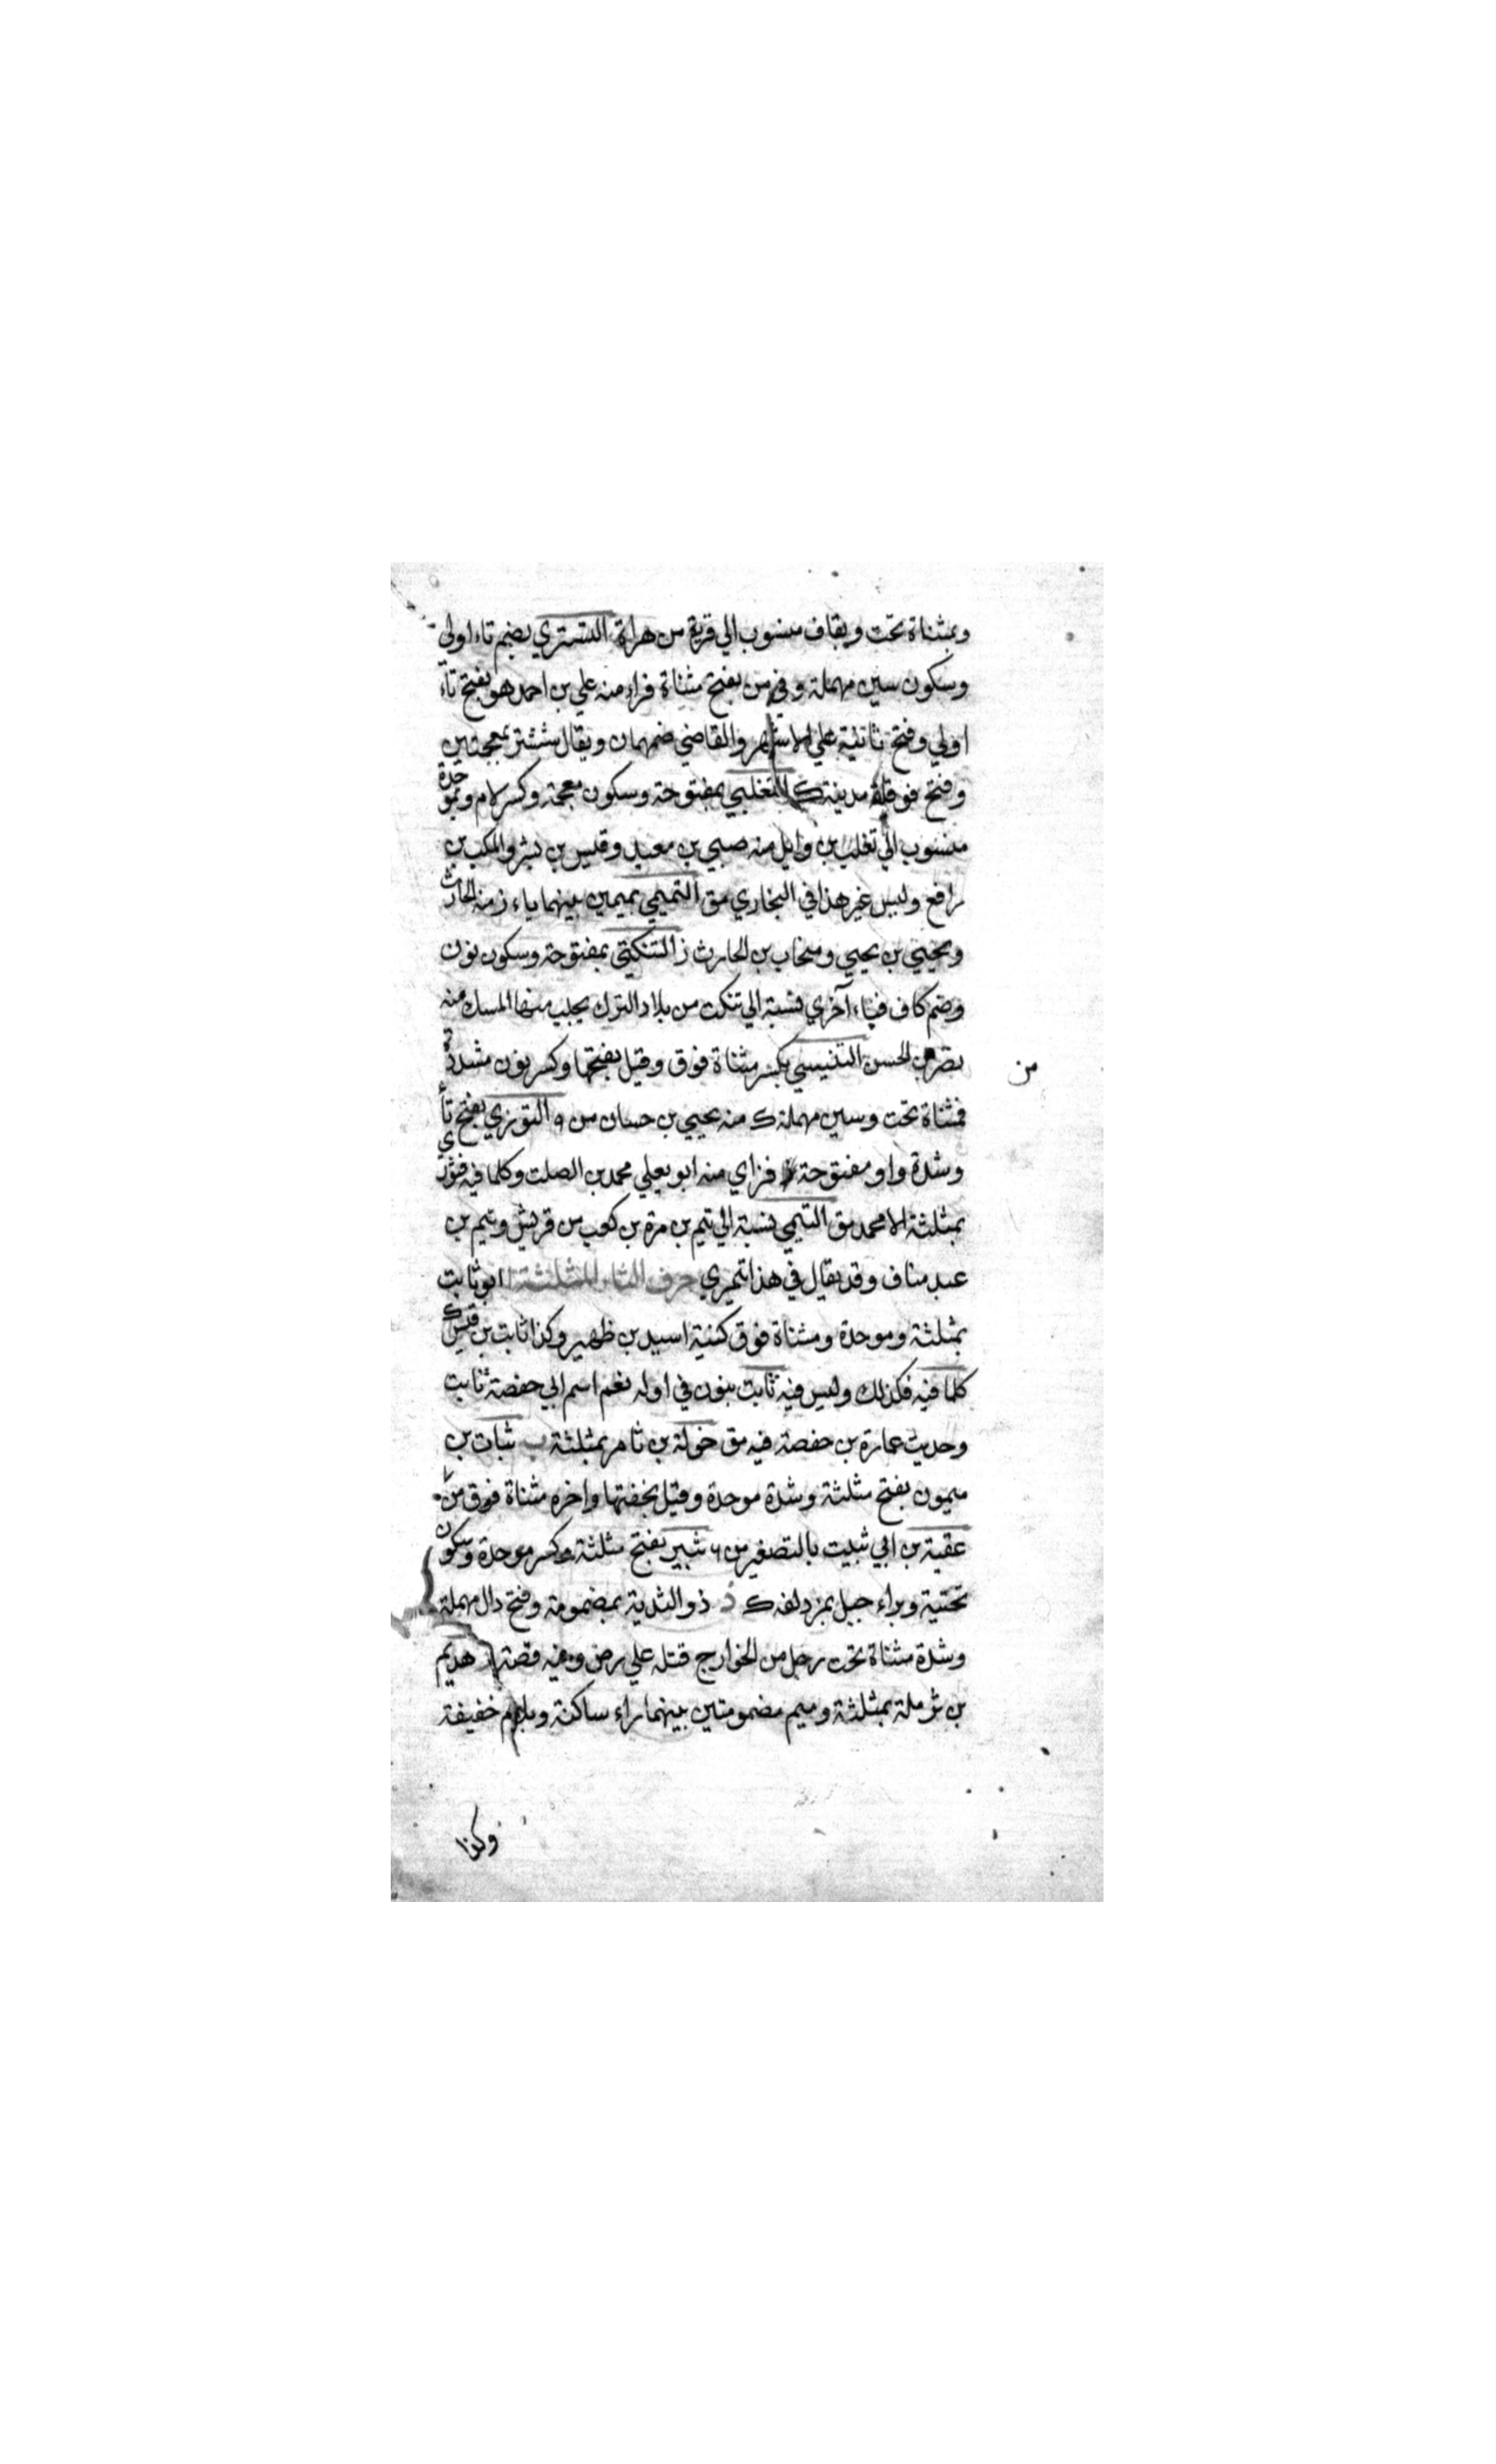 وبمثناة تحت وبقاف منسوب الي قرية من هراة التستري بضم تاء اولي
وسكون سين مهملة وفي من بفتح مثناة فراء منه علي بن احمد هو بفتح تاء
اولي وفتح ثانية علي الاشهر والقاضي ضمهمان ويقال ششتر بمعجمتين
وفتح فوقية مدينة ك التغلبي بمفتوحة وسكون معجمة وكسر لام وبموحدة
منسوب الي تغلب بن وايل منه صبي بن معبد وقيس بن بشر والمكب بن
رافع وليس غير هذا في البخاري مق التميمي بميمين بينهما ياء ز منه الحارث
ويحيي بن يحيي ومنجاب بن الحارث ز التنكتي بمفتوحة وسكون نون
وضم كاف فتاء آخري نسبة الي تنكت من بلاد الترك يجلب منها المسك منه
نصر بن الحسن التنيسي بكسر مثناة فوق وقيل بفتحها وكسر نون مشددة
من
فمثناة تحت وسين مهملة ك منه يحيي بن حسان من و التوزي بفتح تاء
وشدة واو مفتوحة فزاي منه ابو يعلي محمد بن الصلت وكلما فيه فثوري
بمثلثة الا محمد مق التيمي نسبة الي تيم بن مرة بن كعب من قريش وتيم بن
عبد مناف وقد يقال في هذا تيمري حرف الثاء المثلثة ابو ثابت
بمثلثة وموحدة ومثناة فوق كنية اسيد بن ظهير وكذا ثابت بن قيس ك
كلما فيه فكذلك وليس فيه نابت بنون في اوله نعم اسم ابي حفصة نابت
وحديث عمارة بن حفصة فيه مق خولة بن ثامر بمثلثة ب ثبات بن
ميمون بفتح مثلثة وشدة موحدة وقيل بخفتها واخره مثناة فوق من
عقبة بن ابي ثبيت بالتصغير من ثبير بفتح مثلثة وكسر موحدة وسكون
تحتية وبراء جبل بمزدلفة ك د ذو الثدية بمضمومة وفتح دال مهملة
وشدة مثناة تحت رجل من الخوارج قتله علي رض وفيه قصة هديم
بن ثرملة بمثلثة وميم مضمومتين بينهما راء ساكنة وبلام خفيفة
وكذا